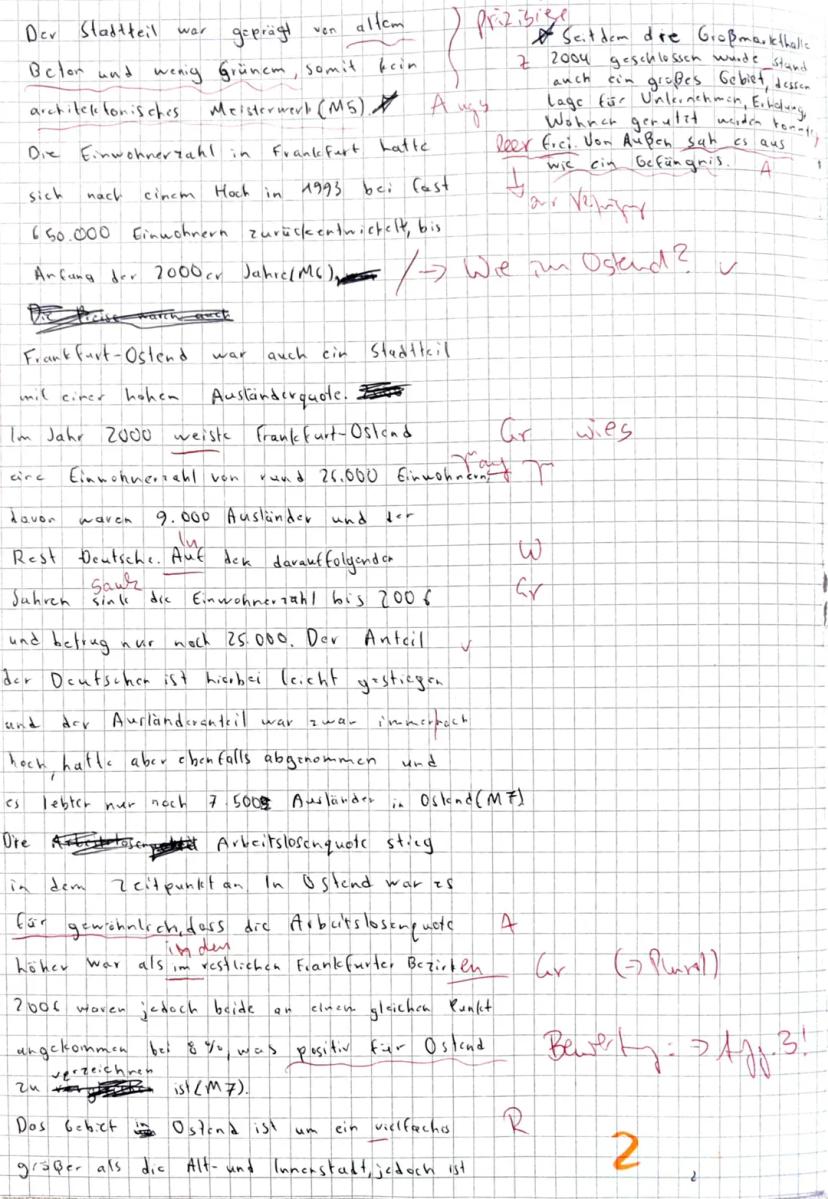 Der Stadtteil war geprägt von altem
Beton und wenig Grünem, somit kein
architektonisches Meisterwerk (M5).
Präzisiere
Ausg
Seitdem die Großmarkthalle
Z 2004 geschlossen wurde stand
auch ein großes Gebiet, dessen
Lage für Unternehmen, Erholung,
Wohnen genutzt werden konnte,
leer frei. Von Außen sah es aus
wie ein Gefängnis. A
zur Verfügung
Die Einwohnerzahl in Frankfurt hatte
sich nach einem Hoch in 1993 bei fast
650.000 Einwohnern zurückentwickelt, bis
Anfang der 2000er Jahre (M6), / → Wie im Ostend? ✓
Die Preise waren auch
Frankfurt-Ostend war auch ein Stadtteil
mit einer hohen Ausländerquote.
Im Jahr 2000 weiste Frankfurt-Ostend Gr wies
eine Einwohnerzahl von rund 26.000 Einwohnern,
davon waren 9.000 Ausländer und der
In
Rest Deutsche. Auf den darauffolgenden W
sank
Jahren sink die Einwohnerzahl bis 2006 Gr
und betrug nur noch 25.000. Der Anteil ✓
der Deutschen ist hierbei leicht gestiegen
und der Ausländeranteil war zwar immernoch
hoch, hatte aber ebenfalls abgenommen und
es lebten nur noch 7.500 Ausländer in Ostend (M7)
Die Arbeitslosenquote stieg
in dem Zeitpunkt an. In Ostend war es
für gewöhnlich, dass die Arbeitslosenquote A
in den
höher war als im restlichen Frankfurter Bezirken Gr (→ Plural)
2006 waren jedoch beide an einem gleichen Punkt
angekommen bei 8%, was positiv für Ostend Bewertung: → Afg. 3!
verzeichnen
zu ist (M7).
Das Gebiet Ostend ist um ein vielfaches R
größer als die Alt- und Innenstadt, jedoch ist
2